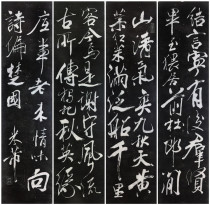 結言寧有後群賢
畢至猥居前杜郎閑
山清氣爽九秋天黃
菊紅茱滿泛船千里
客今焉是謝守風流
古所傳獨把秋英緣
底事老來情味向
詩偏楚國米芾